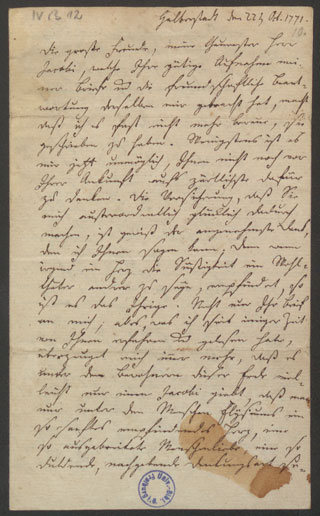 IV B 12
Halberstadt den 22t Oct. 1771.
Die große Freude, mein theuerster Herr
Jacobi, welche Ihre gütige Aufnahme mei-
ner Briefe und die freundschaftliche Beant-
wortung derselben mir gebracht hat, macht
daß ich es fast nicht mehr bereue, Sie
geschrieben zu haben. Wenigstens ist es
mir jetzt unmöglich, Ihnen nicht noch vor
Ihrer Ankunft aufs zärtlichste dafür
zu danken. Die Versicherung, daß Sie
mich außerordentlich glücklich dadurch
machen, ist gewiß der angenehmste Dank,
den ich Ihnen sagen kann. Denn wenn
irgend ein Herz die Süßigkeit ein Wohl-
thäter andrer zu seyn, empfindet, so
ist es das Ihrige. Nicht nur Ihr Brief
an mich, alles, was ich seit einiger Zeit
von Ihnen erfahren und gelesen habe,
überzeugt mich immer mehr, daß es
unter den Bewohnern dieser Erde viel-
leicht nur einen Jacobi giebt, daß man
nur unter den Menschen Elysiums ein
so sanftes empfindendes Herz, eine
so ausgebreitete Menschenliebe, eine so
duldende, nachgebende Denkungsart zu-